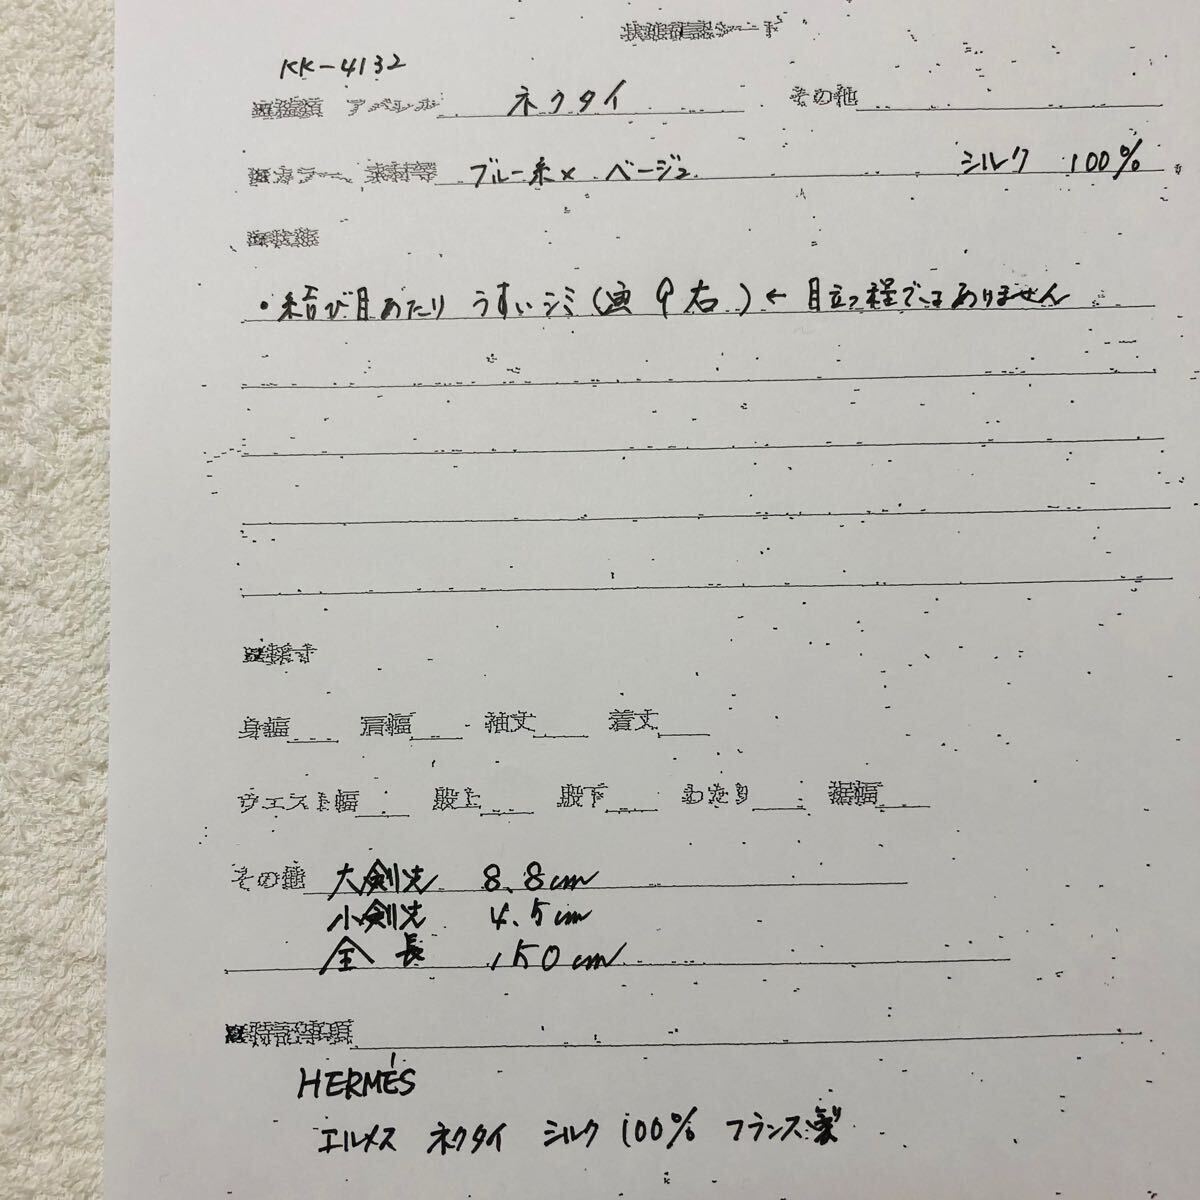 状態確認シート
KK-4132
■種類 アパレル ネクタイ その他
■カラー、素材等 ブルー系× ベージュ シルク 100%
■状態
・結び目あたり うすいシミ(画 9 右)← 目立つ程ではありません
■採寸
身幅 肩幅 袖丈 着丈
ウエスト幅 股上 股下 わたり 裾幅
その他 大剣先 8.8cm
小剣先 4.5cm
全長 150cm
■特記事項
HERMÉS
エルメス ネクタイ シルク 100% フランス製